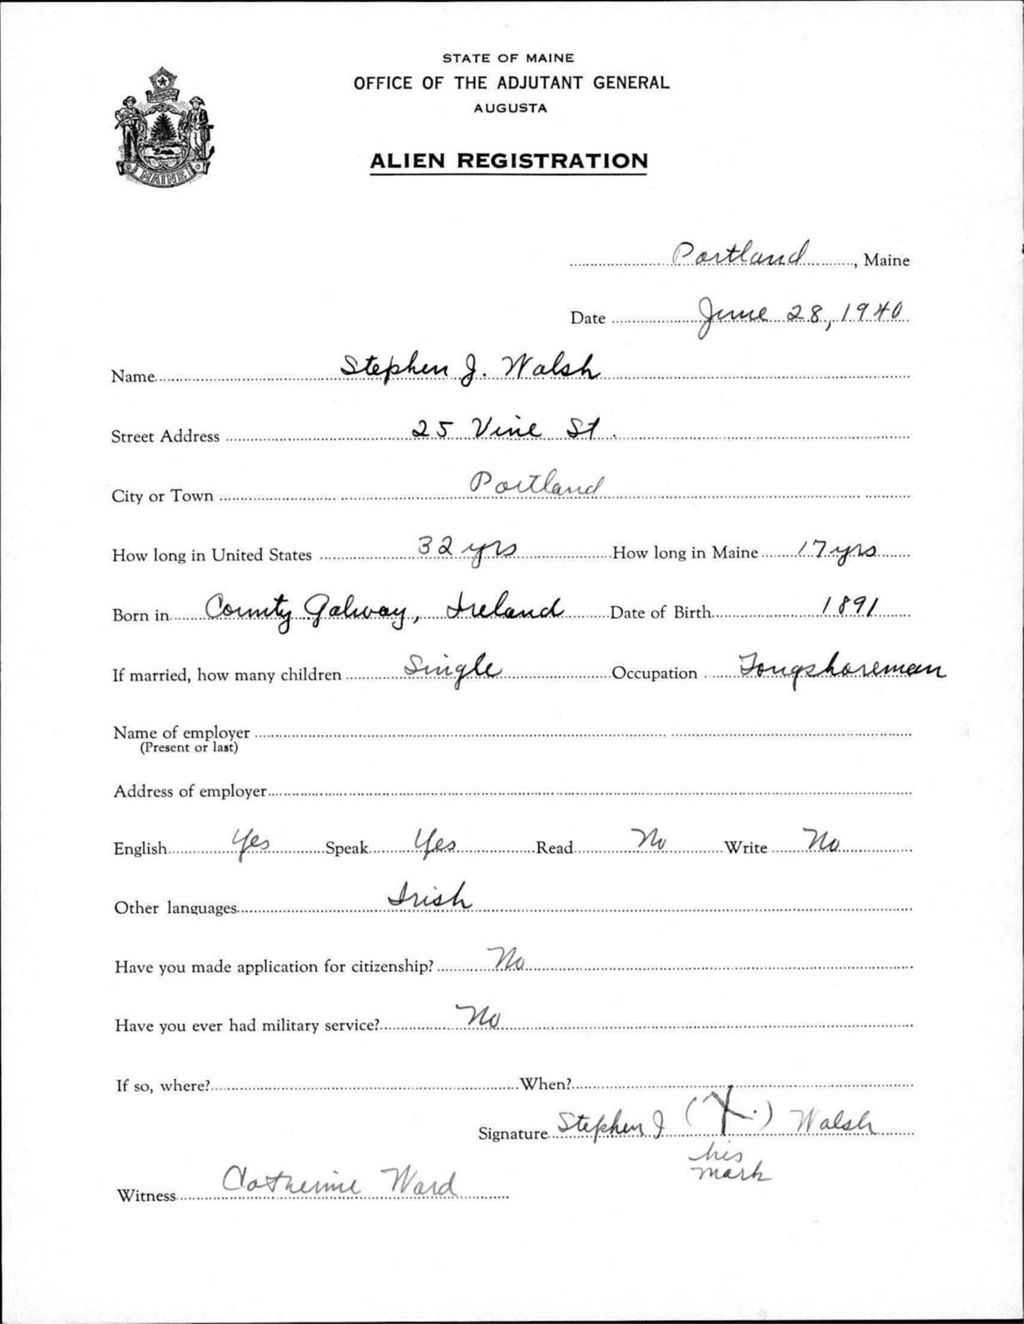 STATE OF MAINE
OFFICE OF THE ADJUTANT GENERAL
AUGUSTA
ALIEN REGISTRATION
MAINE
Portland, Maine
Date June 28, 1940
Name Stephen J. Walsh
Street Address 25 Vine St.
City or Town Portland
How long in United States 32 yrs How long in Maine 17 yrs
Born in County Galway, Ireland Date of Birth 1891
If married, how many children Single Occupation Longshoreman
Name of employer
(Present or last)
Address of employer
English Yes Speak Yes Read No Write No
Other languages Irish
Have you made application for citizenship? No
Have you ever had military service? No
If so, where? When?
Signature Stephen J (X.) Walsh
his
mark
Witness Catherine Ward